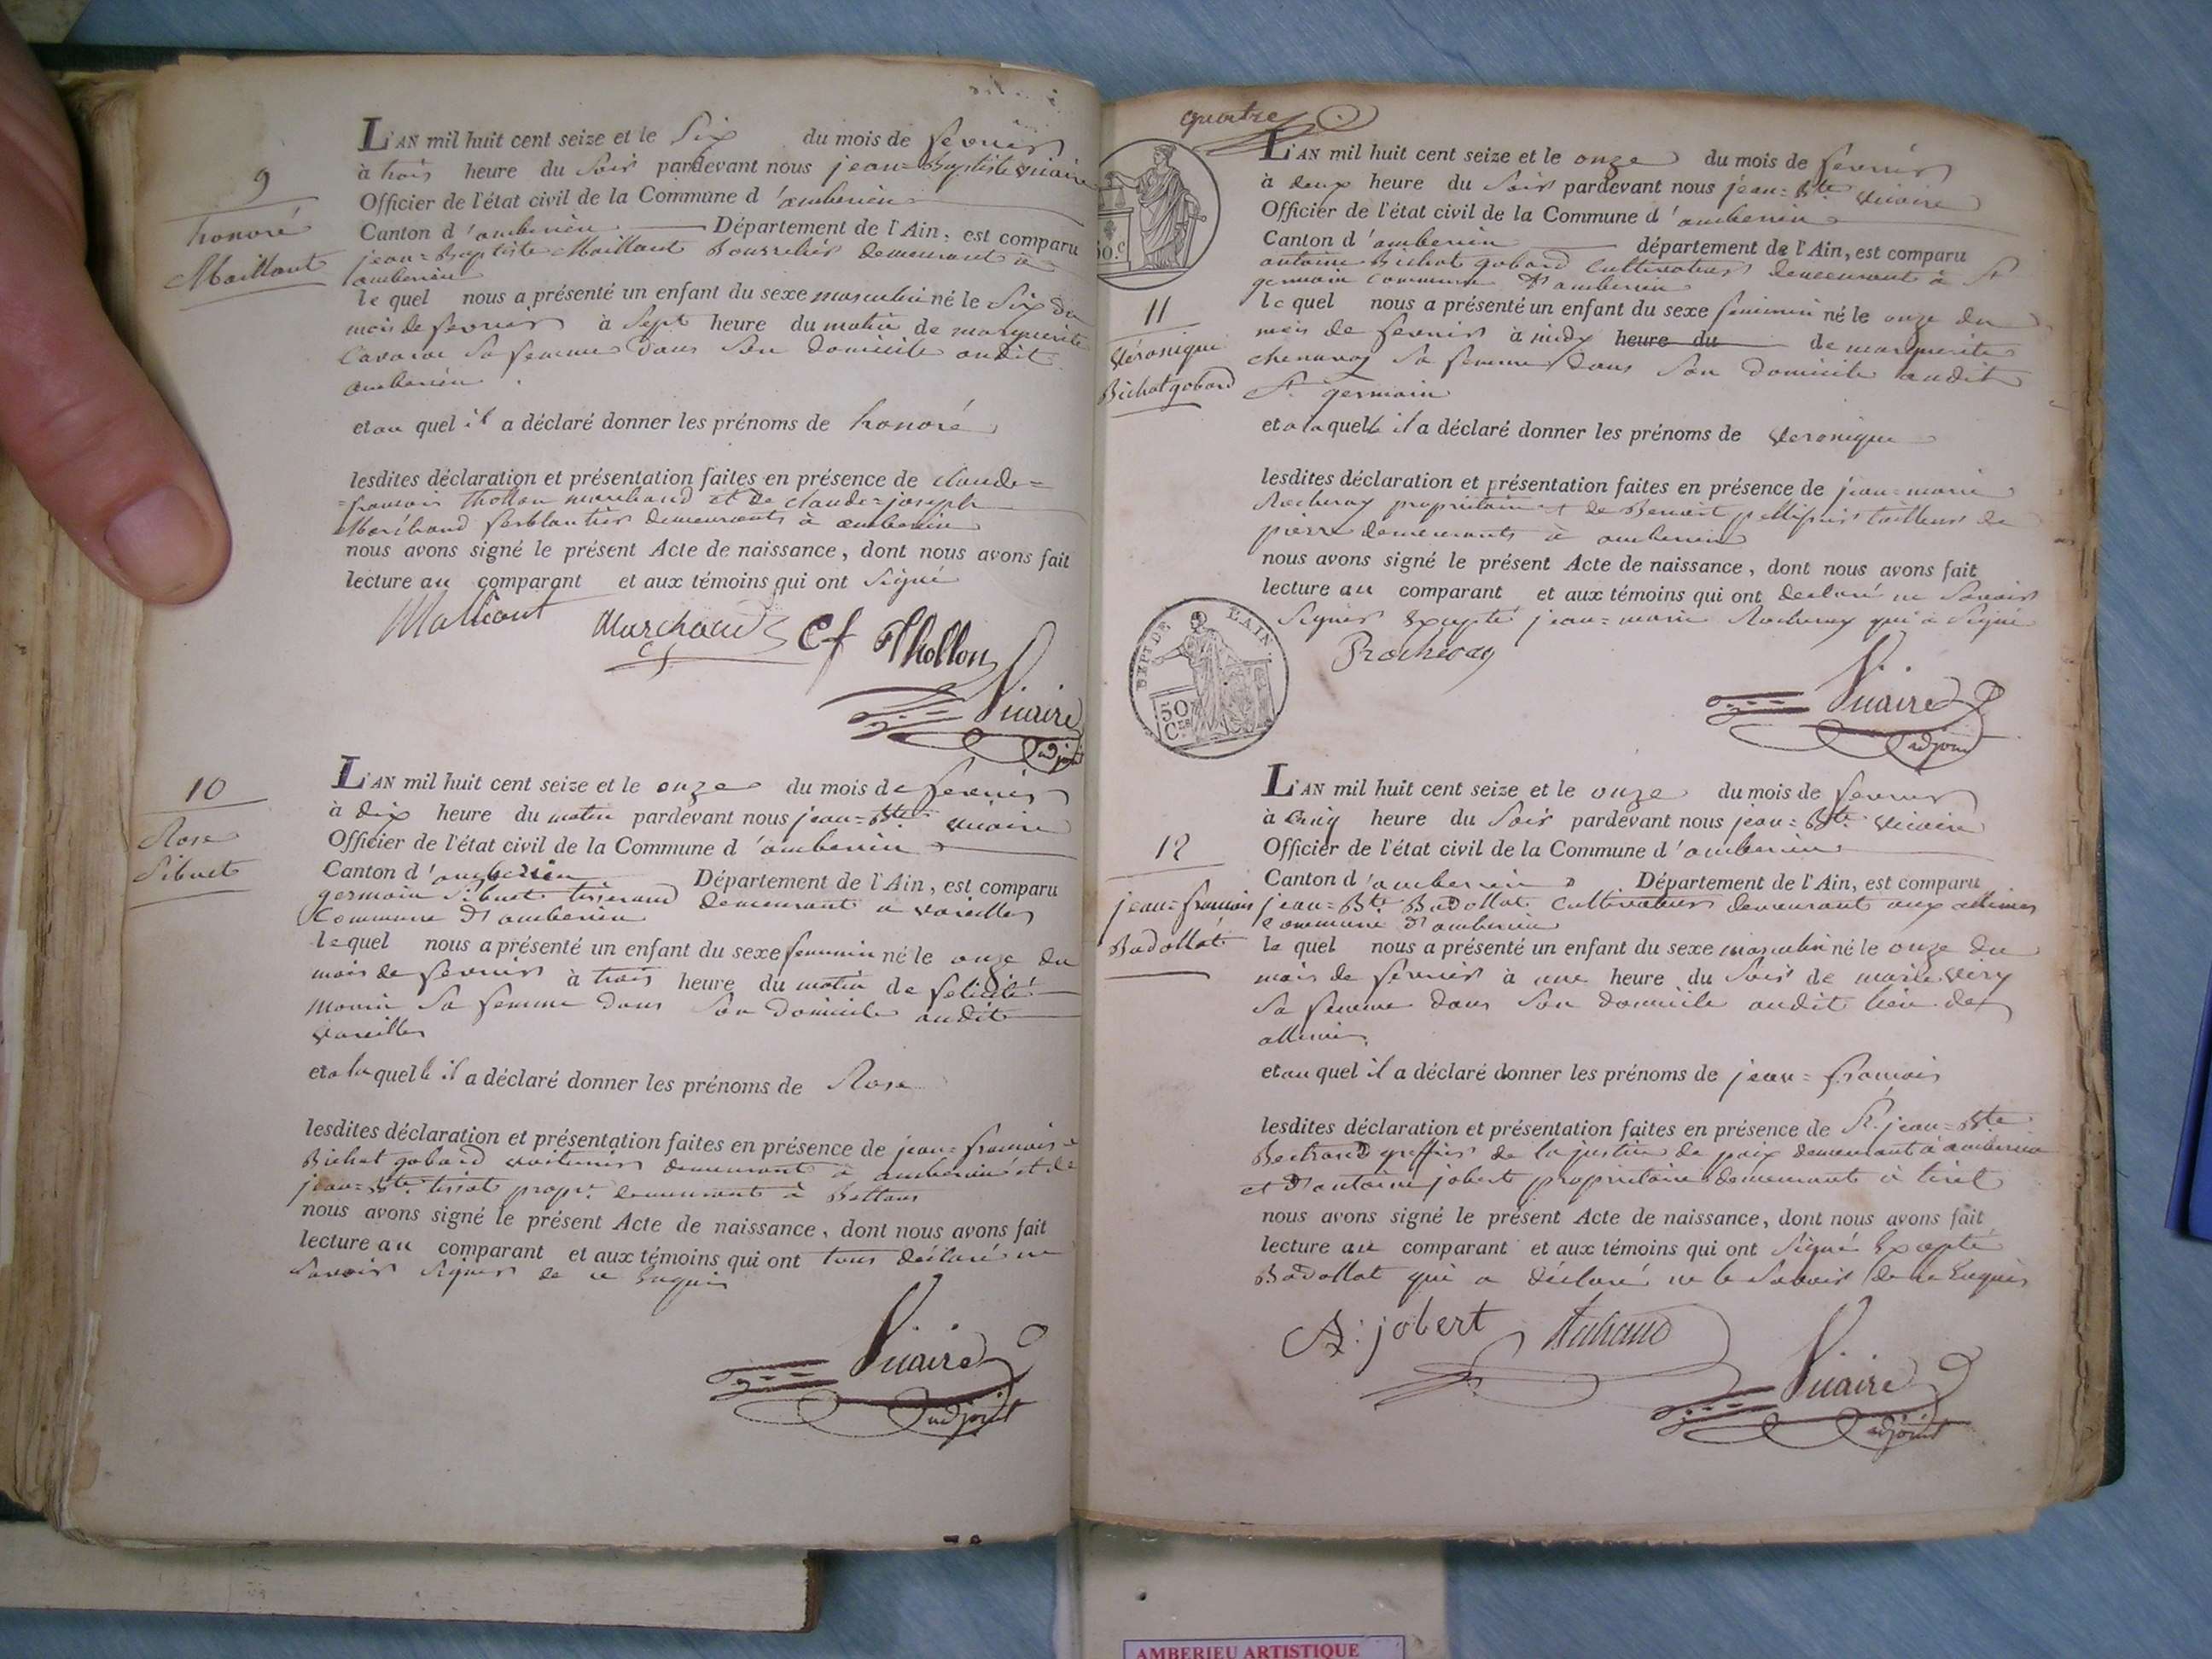 9
honoré
Maillant
L'AN mil huit cent seize et le Six du mois de fevrier
à trois heure du Soir pardevant nous jean=Baptiste Vicaire
Officier de l'état civil de la Commune d'amberieu
Canton d'amberieu Département de l'Ain, est comparu
jean=Baptiste Maillant Bourrelier demeurant à
amberieu
le quel nous a présenté un enfant du sexe masculin né le Six du
mois de fevrier à Sept heure du matin de marguerite
Sa femme dans Son domicile audit
amberieu
et au quel il a déclaré donner les prénoms de honoré
lesdites déclaration et présentation faites en présence de claude=
=francois thollon marchand et de claude=joseph
Marchand ferblantier demeurants à amberieu
nous avons signé le présent Acte de naissance, dont nous avons fait
lecture au comparant et aux témoins qui ont Signé
Malliant Marchand Cf Thollon
Vicaire
adjoint
10
Rose
Sibuet
L'AN mil huit cent seize et le onze du mois de fevrier
à dix heure du matin pardevant nous jean=Bte Vicaire
Officier de l'état civil de la Commune d'amberieu
Canton d'amberieu Département de l'Ain, est comparu
germain Sibuet tisserand demeurant a Vareilles
Commune d'amberieu
lequel nous a présenté un enfant du sexe feminin né le onze du
mois de fevrier à trois heure du matin de felicité
Morin Sa femme dans Son domicile audit
Vareilles
et a la quelle il a déclaré donner les prénoms de Rose
lesdites déclaration et présentation faites en présence de jean=francois=
Bichat gobard voiturier demeurant à amberieu et de
jean=Bte tissot propre. demeurant à Bettans
nous avons signé le présent Acte de naissance, dont nous avons fait
lecture au comparant et aux témoins qui ont tous déclaré ne
Savoir Signer de ce Enquis
Vicaire
adjoint
quatre
50.c
11
Véronique
Bichat gobard
L'AN mil huit cent seize et le onze du mois de fevrier
à deux heure du Soir pardevant nous jean=Bte Vicaire
Officier de l'état civil de la Commune d'amberieu
Canton d'amberieu département de l'Ain, est comparu
antoine Bichat gobard Cultivateur demeurant à St
germain Commune d'amberieu
le quel nous a présenté un enfant du sexe feminin né le onze du
mois de fevrier à midy heure du de marguerite
chenavay Sa femme dans Son domicile audit
St. germain
et a la quelle il a déclaré donner les prénoms de Veronique
lesdites déclaration et présentation faites en présence de jean=marie
Rocheray proprietaire et de Benoit tailleur de
pierre demeurants à amberieu
nous avons signé le présent Acte de naissance, dont nous avons fait
lecture au comparant et aux témoins qui ont declaré ne Savoir
Signer Excepté jean=marie Rocheray qui a Signé
DEPT. DE L'AIN.
50
Cmes
Rocheray
Vicaire
adjoint
12
jean=francois
Badollat
L'AN mil huit cent seize et le onze du mois de fevrier
à Cinq heure du Soir pardevant nous jean=Bte Vicaire
Officier de l'état civil de la Commune d'amberieu
Canton d'amberieu Département de l'Ain, est comparu
jean=Bte Badollat Cultivateur demeurant aux allimes
Commune d'amberieu
le quel nous a présenté un enfant du sexe masculin né le onze du
mois de fevrier à une heure du Soir de marie Viry
Sa femme dans Son domicile audit lieu des
allimes
et au quel il a déclaré donner les prénoms de jean=francois
lesdites déclaration et présentation faites en présence de Sr. jean=Bte
Bertrand greffier de la justice de paix demeurant à amberieu
et d'antoine jobert proprietaire demeurant à tiret
nous avons signé le présent Acte de naissance, dont nous avons fait
lecture au comparant et aux témoins qui ont Signé Excepté
Badollat qui a déclaré ne le Savoir de ce Enquis
A: jobert Bertrand
Vicaire
adjoint
AMBERIEU ARTISTIQUE